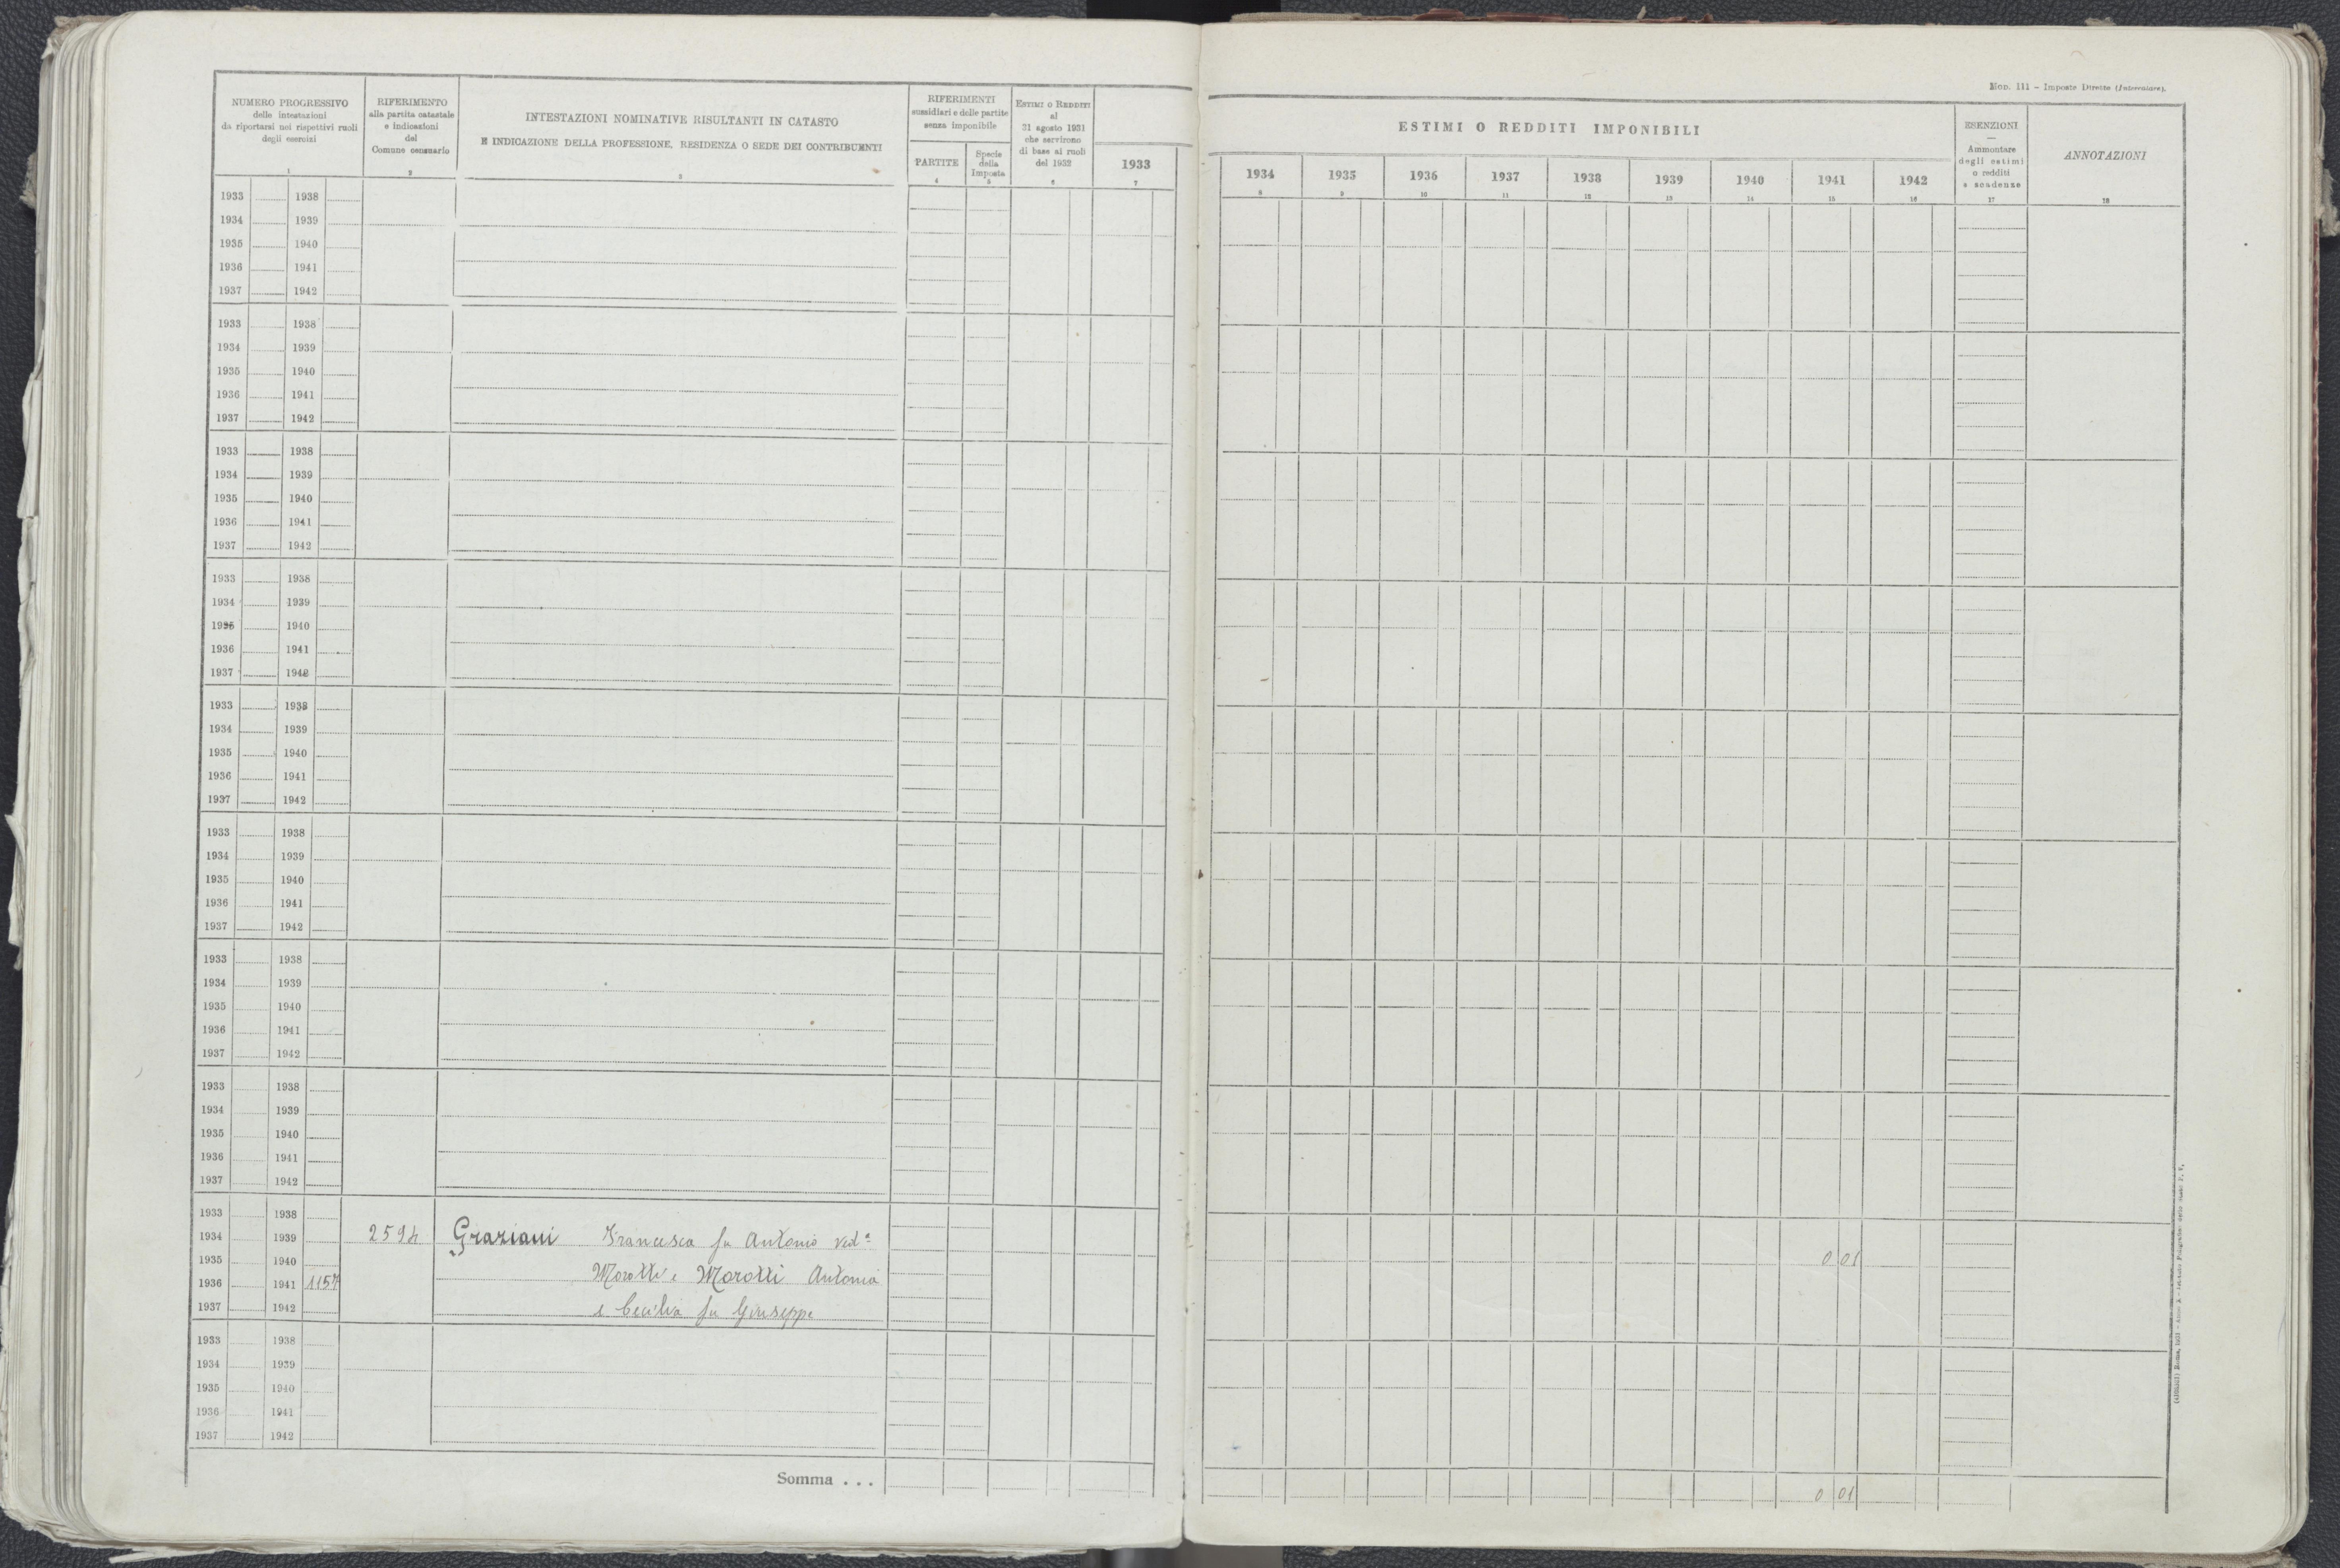 NUMERO PROGRESSIVO
delle intestazioni
da riportarsi nei rispettivi ruoli
degli esercizi
1
RIFERIMENTO
alla partita catastale
e indicazioni
del
Comune censuario
2
INTESTAZIONI NOMINATIVE RISULTANTI IN CATASTO
E INDICAZIONE DELLA PROFESSIONE, RESIDENZA O SEDE DEI CONTRIBUENTI
3
RIFERIMENTI
sussidiari e delle partite
senza imponibile
PARTITE
4
Specie
della
Imposta
5
ESTIMI O REDDITI
al
31 agosto 1931
che servirono
di base ai ruoli
del 1932
6
1933
7
Mod. 111 - Imposte Dirette (Intercalare).
ESTIMI O REDDITI IMPONIBILI
1934 1935 1936 1937 1938 1939 1940 1941 1942
8 9 10 11 12 13 14 15 16
ESENZIONI
—
Ammontare
degli estimi
o redditi
e scadenze
17
ANNOTAZIONI
18
1933 1938
1934 1939
1935 1940
1936 1941
1937 1942
1933 1938
1934 1939
1935 1940
1936 1941
1937 1942
1933 1938
1934 1939
1935 1940
1936 1941
1937 1942
1933 1938
1934 1939
1935 1940
1936 1941
1937 1942
1933 1938
1934 1939
1935 1940
1936 1941
1937 1942
1933 1938
1934 1939
1935 1940
1936 1941
1937 1942
1933 1938
1934 1939
1935 1940
1936 1941
1937 1942
1933 1938
1934 1939
1935 1940
1936 1941
1937 1942
1933 1938
1934 1939 2594 Graziani Francesca fu Antonio ved.a
1935 1940 0 01
1936 1941 1157 Morotti e Morotti Antonia
1937 1942 e Cecilia fu Giuseppe
1933 1938
1934 1939
1935 1940
1936 1941
1937 1942
Somma . . . 0 01